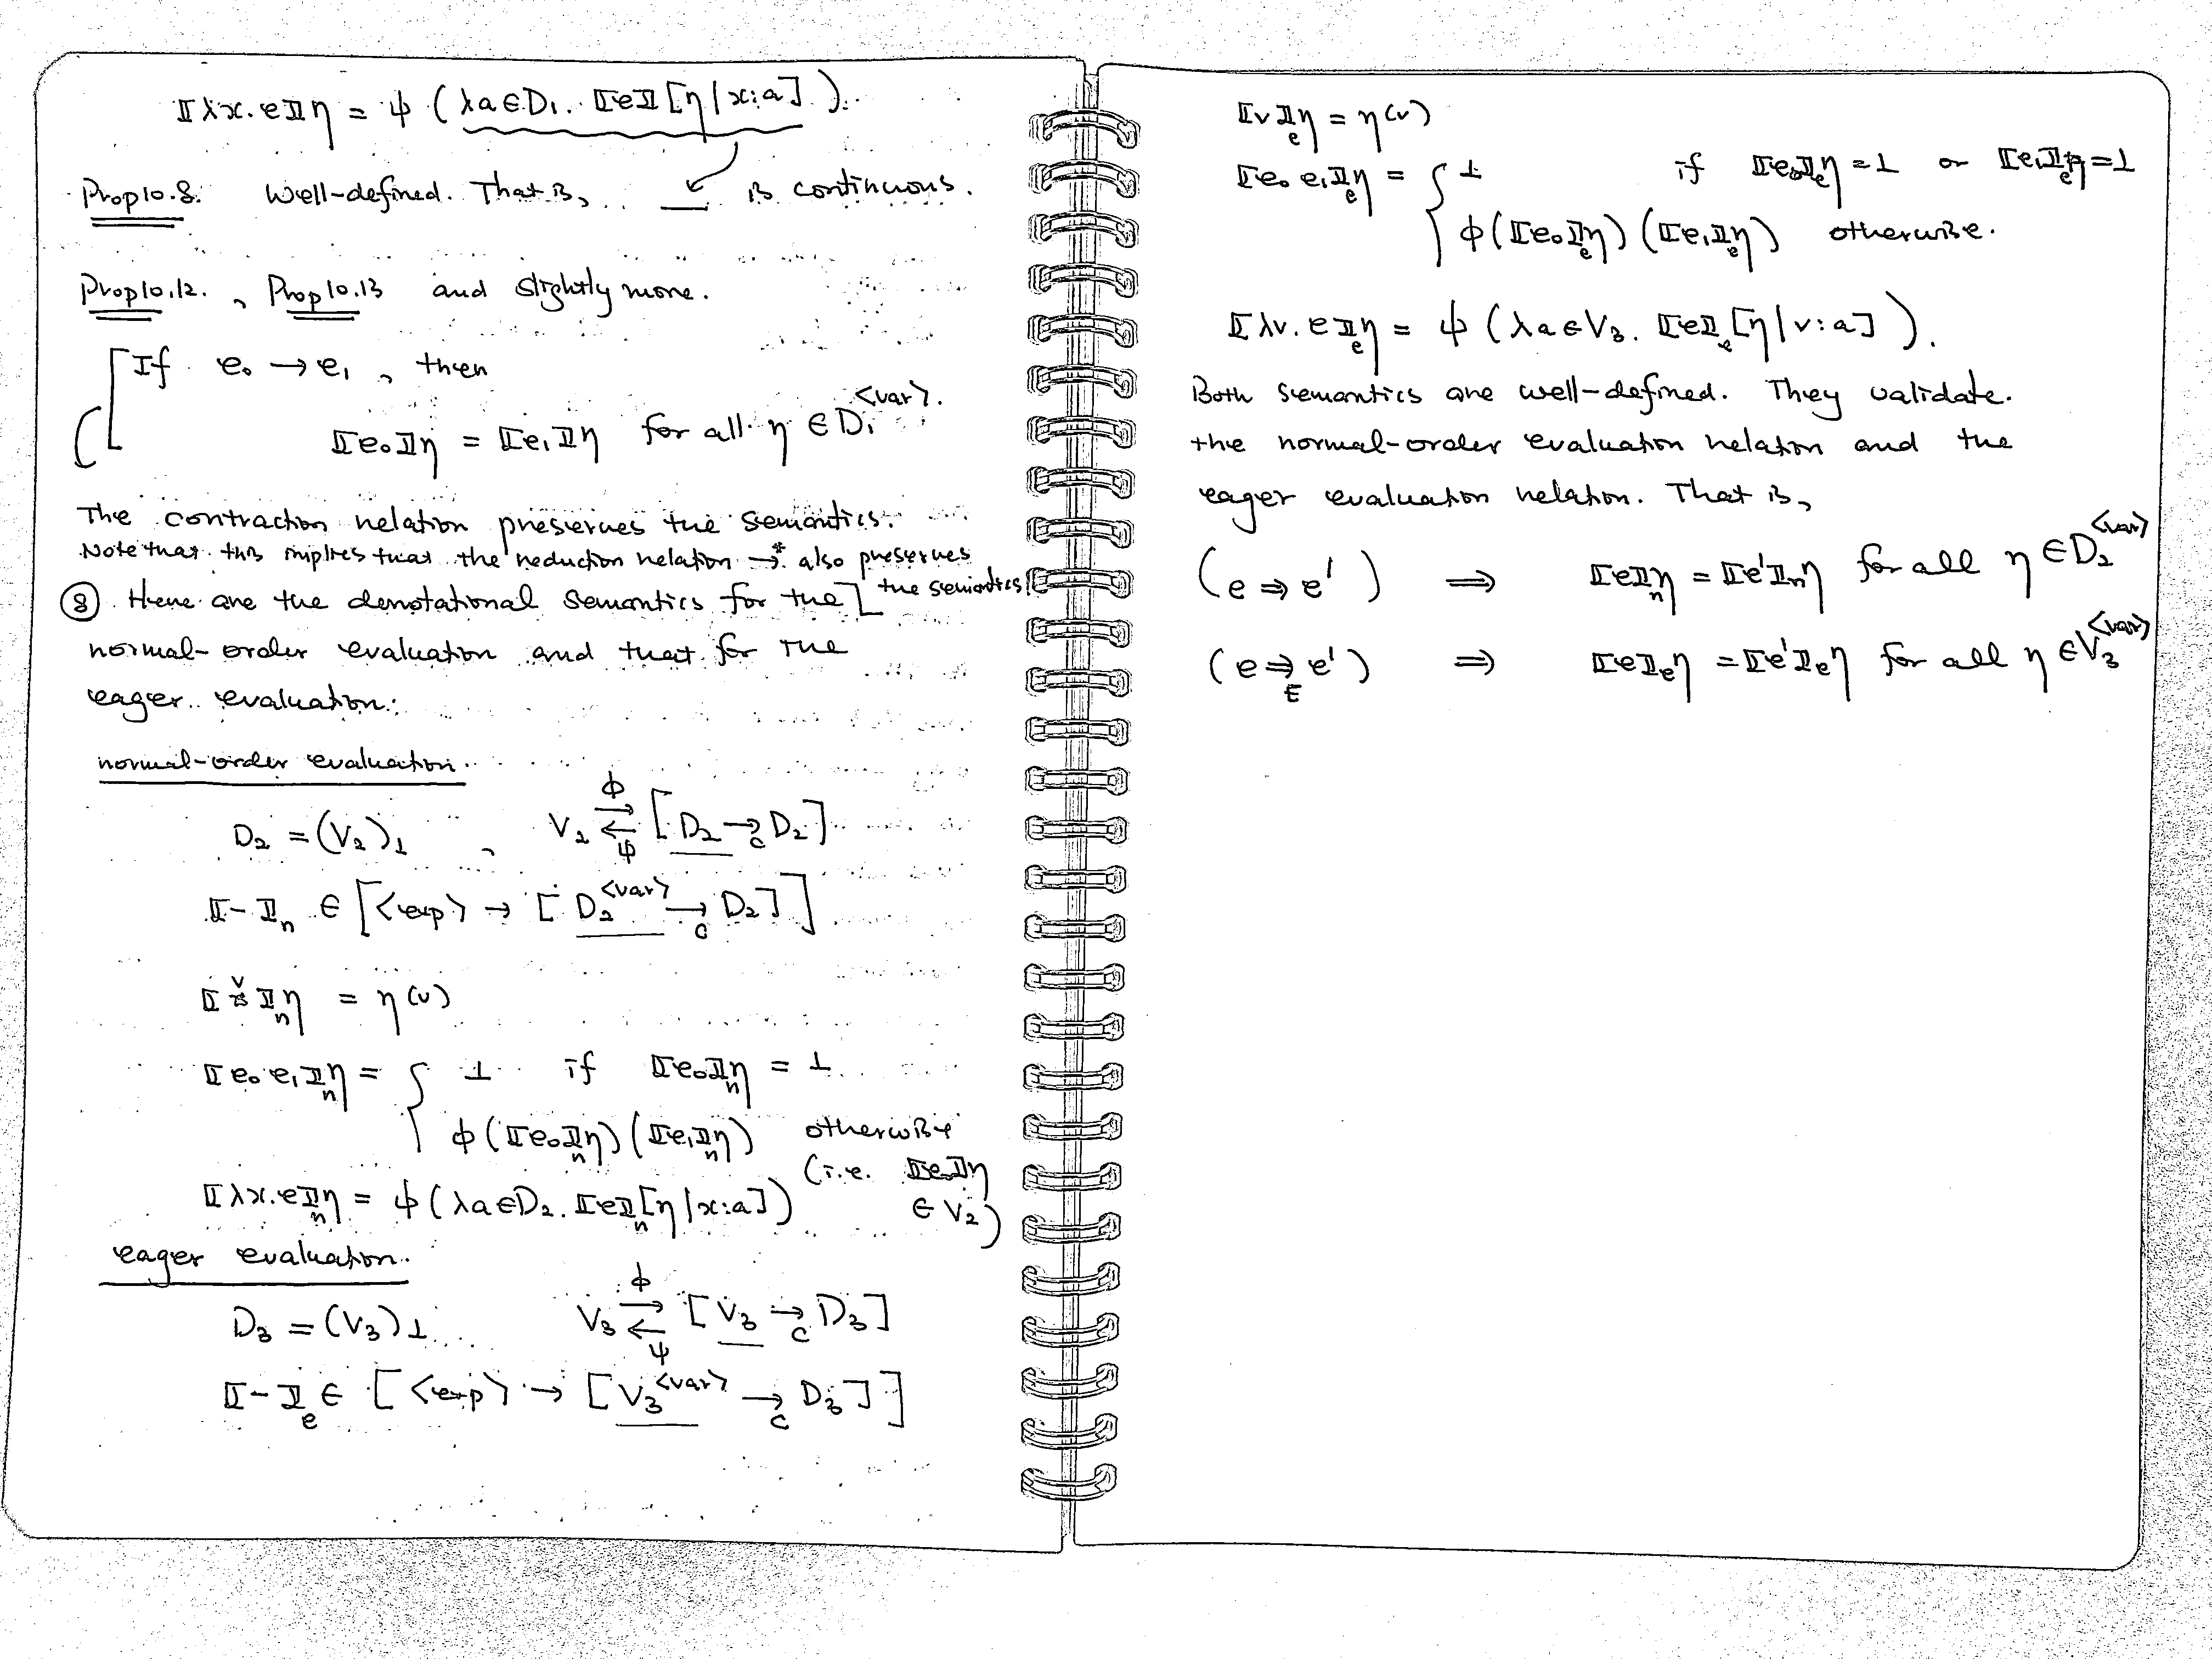 ⟦λx. e⟧η = ψ (λa∈D₁. ⟦e⟧[η|x:a]).
Prop 10.8. Well-defined. That is, __ is continuous.
Prop 10.12. , Prop 10.13 and slightly more.
If e₀ → e₁ , then
⟦e₀⟧η = ⟦e₁⟧η for all η ∈ D₁^<var>.
The contraction relation preserves the semantics.
Note that this implies that the reduction relation →* also preserves
the semantics
⑧ Here are the denotational semantics for the
normal-order evaluation and that for the
eager evaluation.
normal-order evaluation.
D₂ = (V₂)⊥ , V₂ ⇄ [D₂ →_c D₂] ϕ ψ
⟦-⟧ₙ ∈ [<exp> → [D₂^<var> →_c D₂]]
⟦v⟧ₙη = η(v)
⟦e₀ e₁⟧ₙη = { ⊥ if ⟦e₀⟧ₙη = ⊥
ϕ(⟦e₀⟧ₙη)(⟦e₁⟧ₙη) otherwise
(i.e. ⟦e₀⟧η ∈ V₂)
⟦λx.e⟧ₙη = ψ(λa∈D₂. ⟦e⟧ₙ[η|x:a])
eager evaluation.
D₃ = (V₃)⊥ V₃ ⇄ [V₃ →_c D₃] ϕ ψ
⟦-⟧ₑ ∈ [<exp> → [V₃^<var> →_c D₃]]
⟦v⟧ₑη = η(v)
⟦e₀ e₁⟧ₑη = { ⊥ if ⟦e₀⟧ₑη = ⊥ or ⟦e₁⟧ₑη = ⊥
ϕ(⟦e₀⟧ₑη)(⟦e₁⟧ₑη) otherwise.
⟦λv. e⟧ₑη = ψ (λa∈V₃. ⟦e⟧ₑ[η|v:a]).
Both semantics are well-defined. They validate
the normal-order evaluation relation and the
eager evaluation relation. That is,
(e ⇒ e') ⟹ ⟦e⟧ₙη = ⟦e'⟧ₙη for all η ∈ D₂^<var>
(e ⇒_E e') ⟹ ⟦e⟧ₑη = ⟦e'⟧ₑη for all η ∈ V₃^<var>